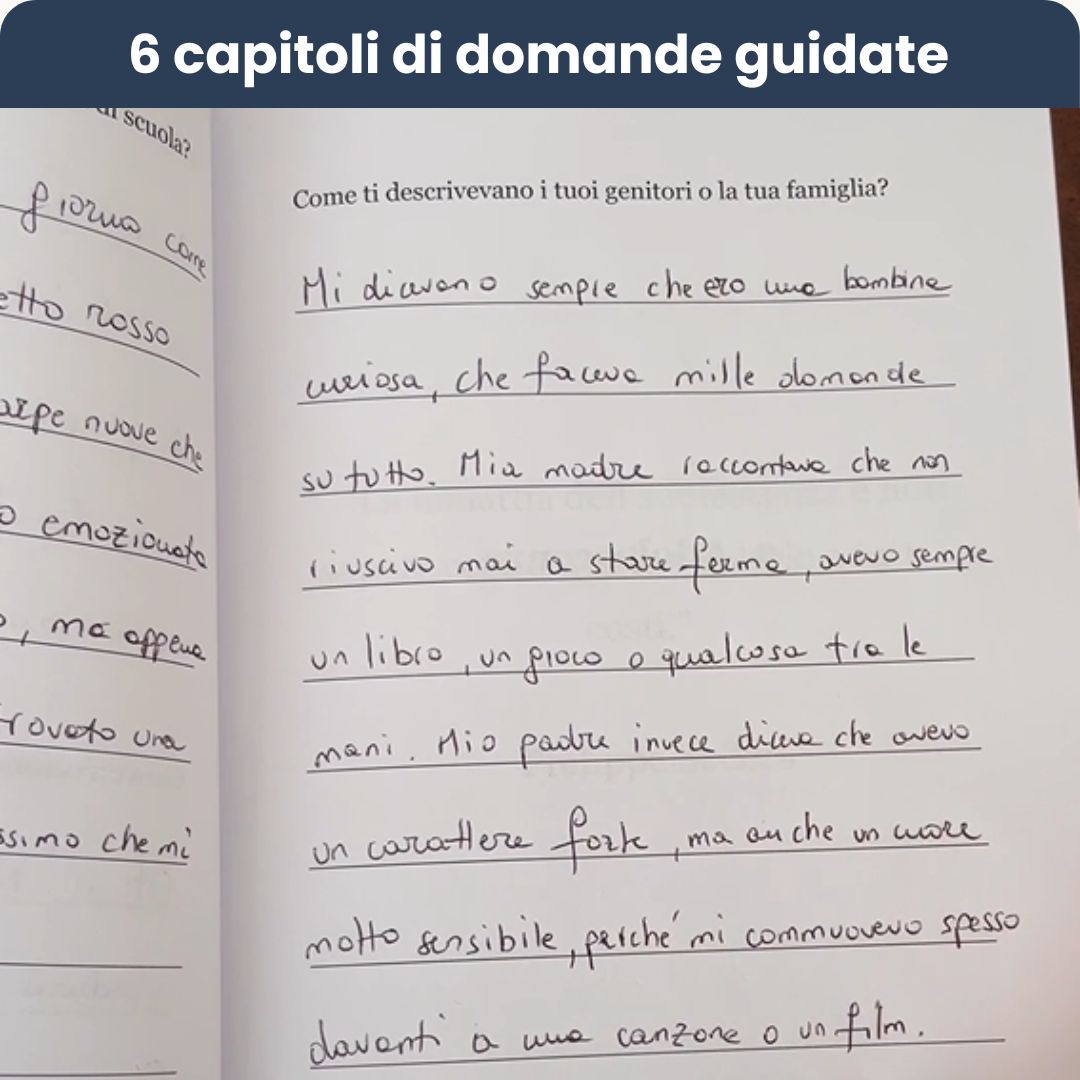 6 capitoli di domande guidate
di scuola?
giorno come
etto rosso
arpe nuove che
o emozionato
, ma appena
trovato una
ssimo che mi
Come ti descrivevano i tuoi genitori o la tua famiglia?
Mi dicevano sempre che ero una bambina
curiosa, che faceva mille domande
su tutto. Mia madre raccontava che non
riuscivo mai a stare ferma, avevo sempre
un libro, un gioco o qualcosa tra le
mani. Mio padre invece diceva che avevo
un carattere forte, ma anche un cuore
molto sensibile, perché mi commuovevo spesso
davanti a una canzone o un film.